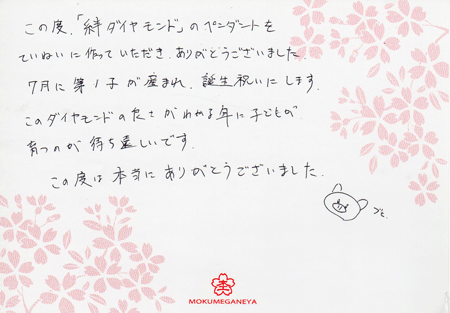 この度、「絆ダイヤモンド」のペンダントを
ていねいに作っていただき、ありがとうございました。
7月に第1子が産まれ、誕生祝いにします。
このダイヤモンドの良さがわかる年に子どもが
育つのが待ち遠しいです。
この度は本当にありがとうございました。
MOKUMEGANEYA